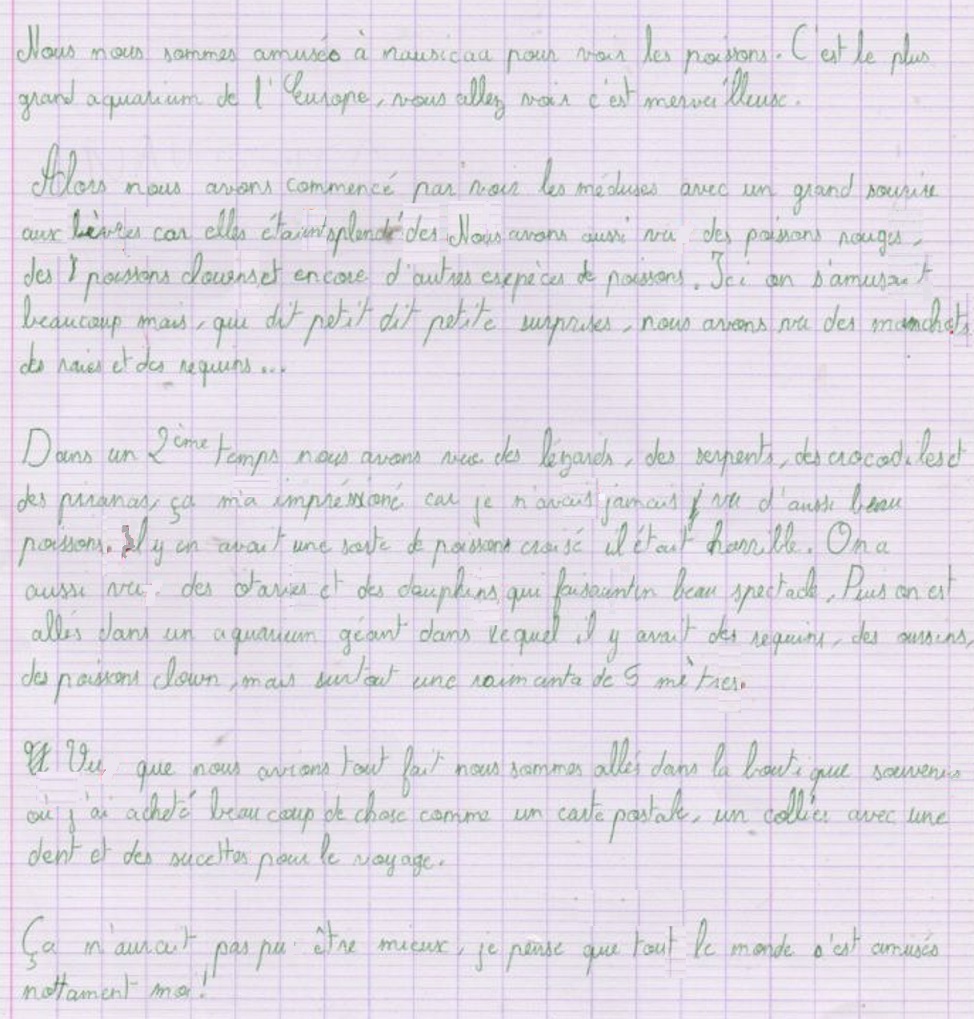 Nous nous sommes amusés à nausicaa pour voir les poissons. C'est le plus
grand aquarium de l'Europe, vous allez voir c'est merveilleux.
Alors nous avons commencé par voir les méduses avec un grand sourire
aux lèvres car elles étaint splendides. Nous avons aussi vu des poissons rouges,
des poissons clowns et encore d'autres esepèces de poissons. Ici on s'amusait
beaucoup mais, qui dit petit dit petite surprises, nous avons vu des manchots,
des raies et des requins...
Dans un 2ème temps nous avons vue des légards, des serpents, des crocodiles et
des piranas, ça m'a impréssioné car je n'avais jamais vu d'aussi beau
poissons. Il y en avait une sorte de poissons croisé il était horrible. On a
aussi vu des otaries et des dauphins qui faisaint un beau spectacle. Puis on est
allés dans un aquarium géant dans lequel il y avait des requins, des oursins,
des poissons clown, mais surtout une raimanta de 5 mètres.
Vu que nous avions tout fait nous sommes allés dans la boutique souvenirs
où j'ai acheté beaucoup de chose comme un carte postale, un collier avec une
dent et des sucettes pour le voyage.
Ça n'aurait pas pu être mieux, je pense que tout le monde s'est amusés
nottament moi!